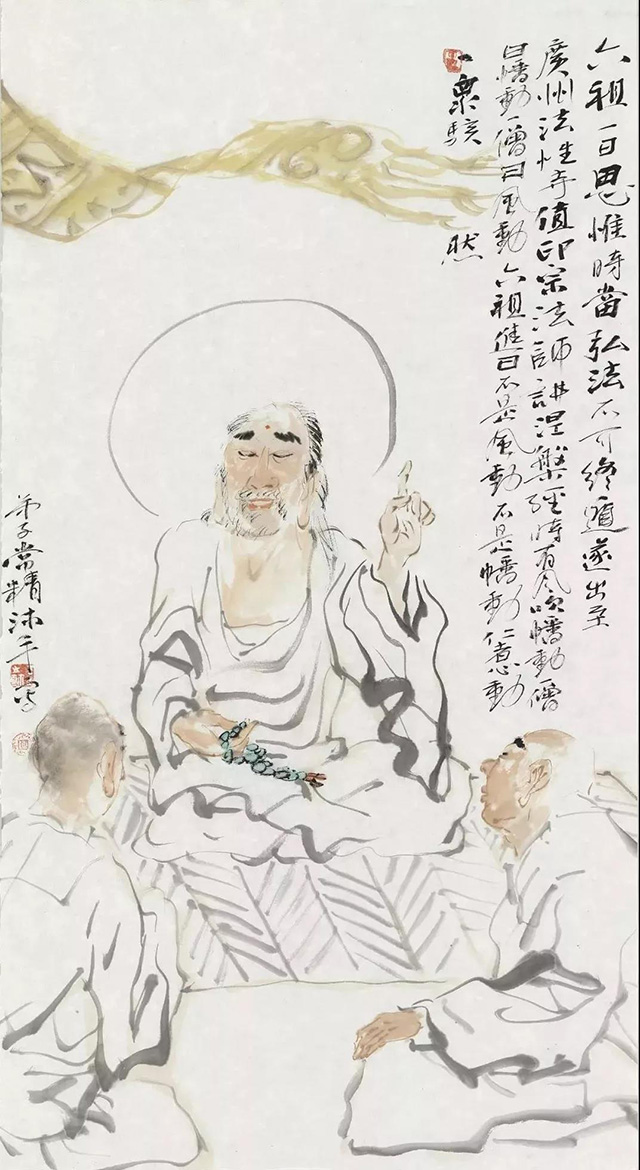 六祖一日思惟時當弘法不可終遁遂出至
廣州法性寺值印宗法師讲涅槃經時有风吹幡動僧
曰幡動一僧曰風動六祖進曰不是風動不是幡動仁者心動
一衆駭然
弟子常精沐手写